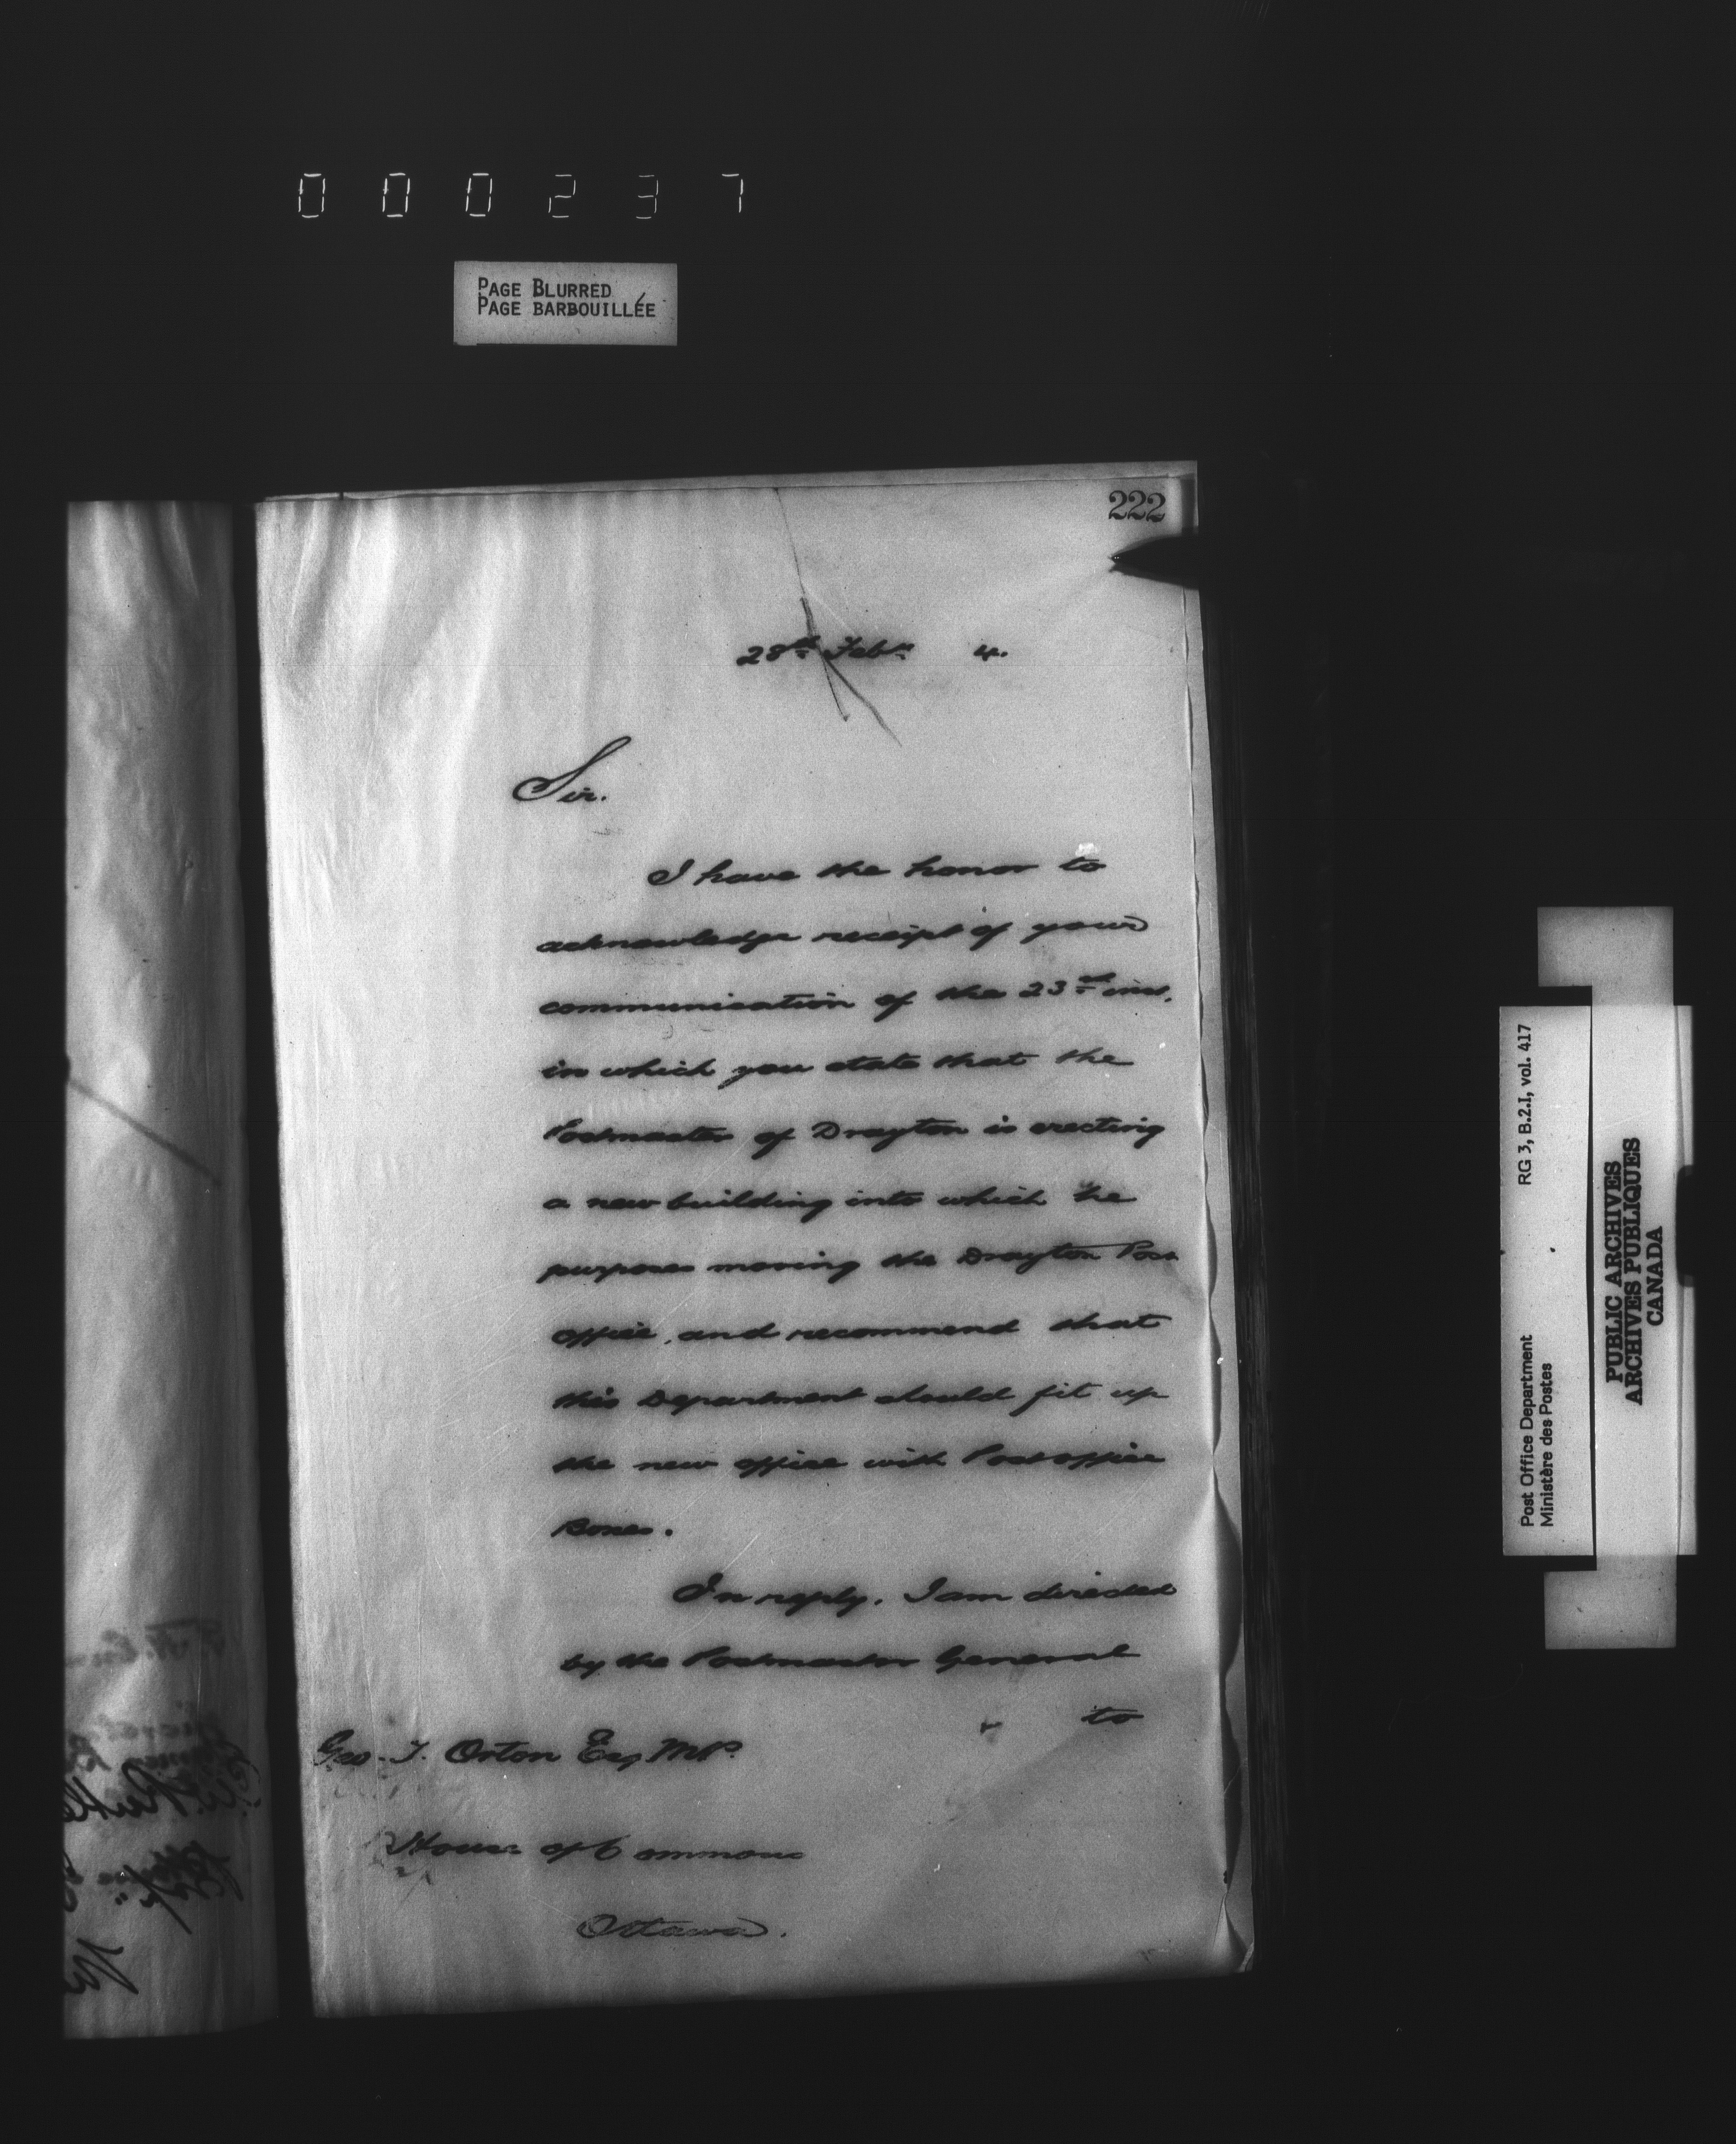 000237
PAGE BLURRED
PAGE BARBOUILLÉE
222
28th Febry 4.
Sir.
I have the honor to
acknowledge receipt of your
communication of the 23rd inst.
in which you state that the
Postmaster of Drayton is erecting
a new building into which he
purposes moving the Drayton Post
office, and recommend that
this Department should fit up
the new office with Post office
Boxes.
In reply, I am directed
by the Postmaster General
to
Geo. T. Orton Esq M.P.
House of Commons
Ottawa.
RG 3, B.2.I, vol. 417
Post Office Department
Ministère des Postes
PUBLIC ARCHIVES
ARCHIVES PUBLIQUES
CANADA